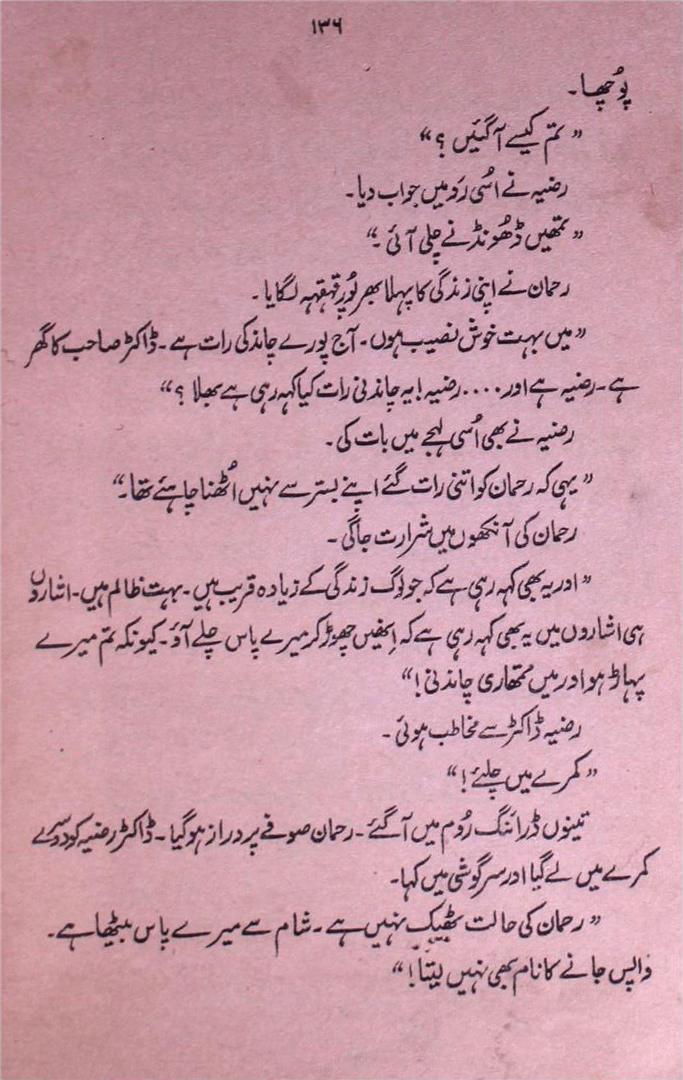 ۱۳۶
پوُچھا۔
”تم کیسے آگئیں ؟“
رضیہ نے اُسی رَو میں جواب دیا۔
”تمھیں ڈھُونڈنے چلی آئی ۔“
رحمان نے اپنی زندگی کا پہلا بھر پُور قہقہہ لگایا۔
”میں بہت خوش نصیب ہوں۔ آج پورے چاند کی رات ہے۔ ڈاکٹر صاحب کا گھر
ہے۔ رضیہ ہے اور.... رضیہ! یہ چاندنی رات کیا کہہ رہی ہے بھلا ؟“
رضیہ نے بھی اُسی لہجے میں بات کی۔
”یہی کہ رحمان کو اتنی رات گئے اپنے بستر سے نہیں اُٹھنا چاہئے تھا۔“
رحمان کی آنکھوں میں شرارت جاگی۔
”اور یہ بھی کہہ رہی ہے کہ جو لوگ زندگی کے زیادہ قریب ہیں۔ بہت ظالم ہیں۔ اشاروں
ہی اشاروں میں یہ بھی کہہ رہی ہے کہ اِنھیں چھوڑ کر میرے پاس چلے آؤ۔ کیونکہ تم میرے
پہاڑ ہو اور میں تمھاری چاندنی!“
رضیہ ڈاکٹر سے مخاطب ہوئی۔
”کمرے میں چلئے!“
تینوں ڈرائنگ رُوم میں آگئے۔ رحمان صوفے پر دراز ہوگیا۔ ڈاکٹر رضیہ کو دوسرے
کمرے میں لے گیا اور سرگوشی میں کہا۔
”رحمان کی حالت ٹھیک نہیں ہے۔ شام سے میرے پاس بیٹھا ہے۔
واپس جانے کا نام بھی نہیں لیتا!“